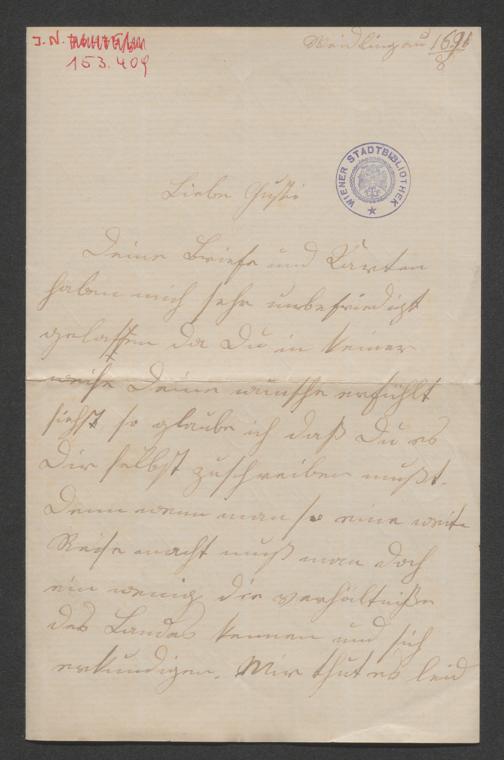 I. N.
153.409
Weidlingau 16/8 96
WIENER STADTBIBLIOTHEK
Liebe Gusti
Deine Briefe und Karten
haben mich sehr unbefriedigt
gelassen da Du in keiner
weise Deine wünsche erfühlt
siehst so glaube ich daß Du es
Dir selbst zuschreiben mußt.
Denn wenn man so eine weite
Reise macht muß man doch
ein wenig die verhältniße
des Landes kennen und sich
erkundigen. Mir thut es leid